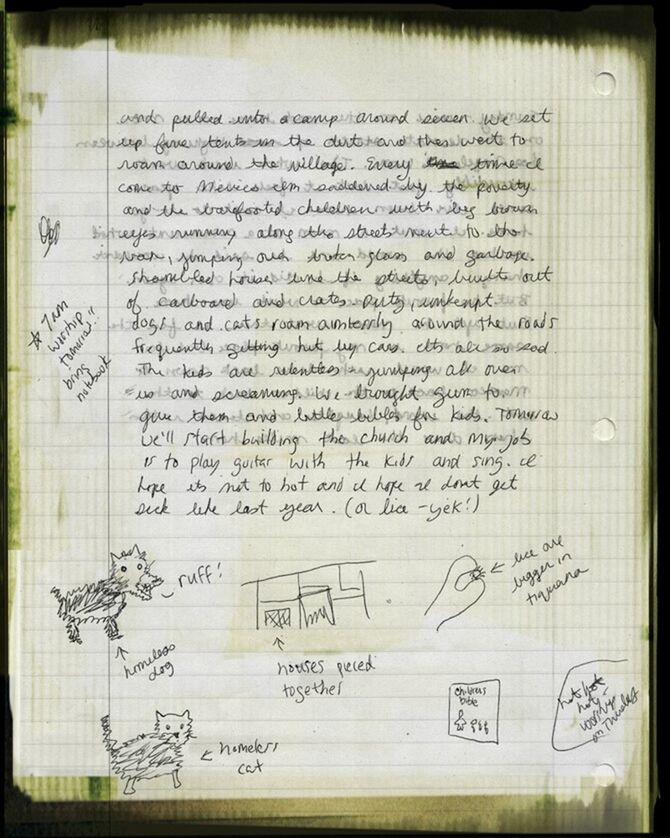 and pulled into a camp around seven. We set
up five tents in the dirt and then went to
roam around the village. Every time I
come to Mexico Im saddened by the poverty
and the barefooted children with big brown
eyes running along the streets next to the
war, jumping over broken glass and garbage.
Shambled houses line the streets, built out
of carboard and crates. Dirty, unkempt
dogs and cats roam aimlessly around the roads
frequently getting hit by cars. Its all so sad.
The kids are relentless jumping all over
us and screaming. We brought gum to
give them and little bibles for kids. Tomorrow
we'll start building the church and my job
is to play guitar with the kids and sing. I
hope its not to hot and I hope I dont get
sick like last year. (or lice - yek!)
7 AM
worship
tomorrow!!
bring
notebook
ruff!
homeless
dog
houses pieced
together
lice are
bigger in
tiquana
childrens
bible
homeless
cat
hot
worship
on